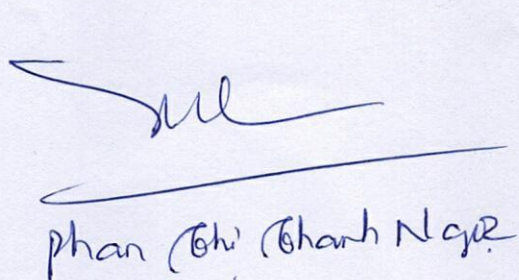 Phan Thị Thanh Ngọc